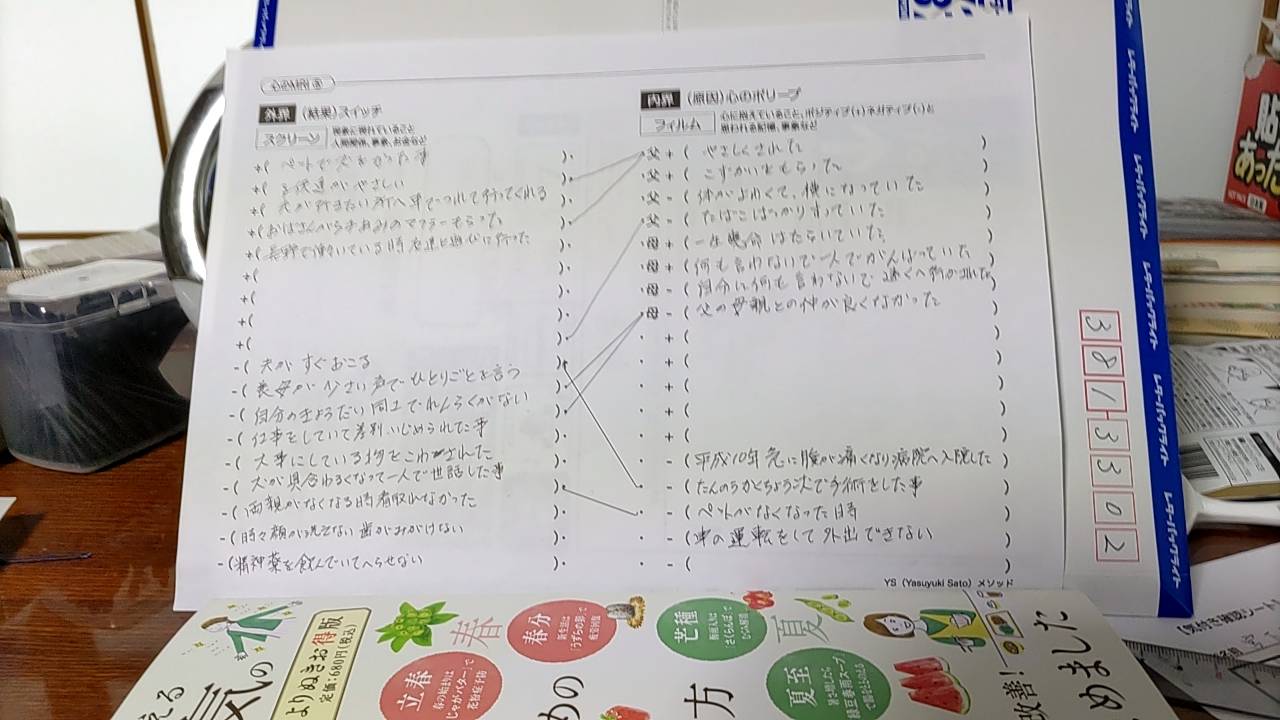 外界 (結果)スイッチ
スクリーン
現象に現れていること
人間関係、事業、お金など
+( ペットで犬をかった事 )・
+( 子供達がやさしい )・
+( 夫が行きたい所へ車でつれて行ってくれる )・
+(おばさんから手あみのマフラーもらった )・
+( 長野で働いている時友達と遊びに行った )・
+( )・
+( )・
+( )・
+( )・
-( 夫が すぐおこる )・
-( 義母が 小さい声で ひとりごとを言う )・
-( 自分のきょうだい同士でれんらくがない )・
-( 仕事をしていて差別、いじめられた事 )・
-( 大事にしている物をこわされた )・
-( 犬が具合わるくなって一人で世話した事 )・
-( 両親がなくなる時看取れなかった )・
-( 時々顔が洗えない 歯がみがけない )・
-(精神薬を飲んでいてへらせない )・
内界 (原因)心のポリープ
フィルム
心に抱えていること、ポジティブ(+)ネガティブ(-)と
思われる記憶、事象など
・父 + ( やさしくされた )
・父 + ( こずかいをもらった )
・父 - ( 体がよわくて、横になっていた )
・父 - ( たばこばっかりすっていた )
・母 + ( 一生懸命 はたらいていた )
・母 + ( 何も言わないで一人でがんばっていた )
・母 - ( 自分に何も言わないで遠くへ
・母 - ( 父の母親との仲が良くなかった )
・ + ( )
・ + ( )
・ + ( )
・ + ( )
・ + ( )
・ - ( 平成10年急に腹が痛くなり病院へ入院した )
・ - ( たんのうかくちょう次で手術をした事 )
・ - ( ペットがなくなった時 )
・ - ( 車の運転をして外出できない )
・ - ( )
YS（Yasuyuki Sato）メソッド
レターパックライト
レターパックライト
レターパックライト
レターパックライト
3 8 1 3 3 0 2
貼
あった
よりぬきお得版
定価:680円(税込)
気の
春
立春
春の始まりは
「じゃがバター」で
花粉症予防
春分
新生活は
「うずらの卵」で
疲労回復
芒種
梅雨入りは
「さくらんぼ」で
むくみ解消
夏
夏至
暑さ増したら
「緑豆春雨スープ」で
めの
方
改善!
めました